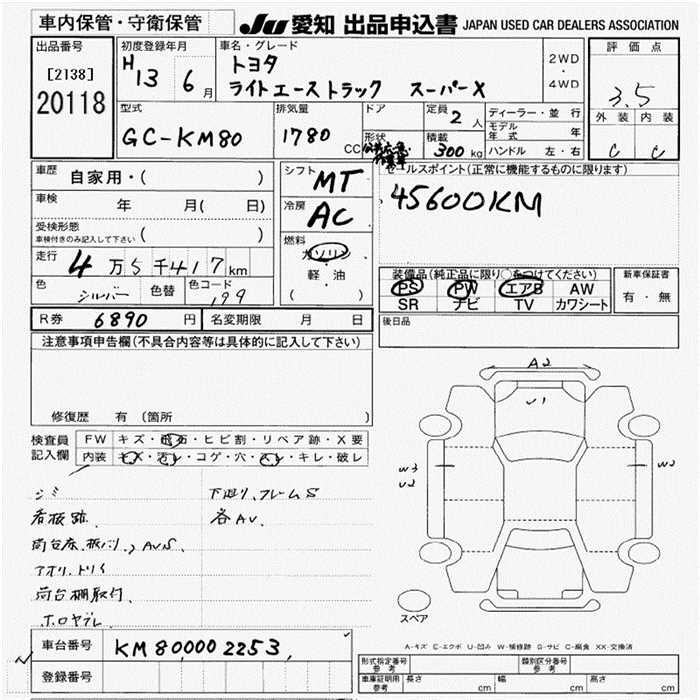 車内保管・守衛保管 JU 愛知 出品申込書 JAPAN USED CAR DEALERS ASSOCIATION
出品番号
[2138]
20118
初度登録年月
H13 6月
車名・グレード
トヨタ
ライトエーストラック スーパーX
2WD
・
4WD
評価点
3.5
外装 内装
C C
型式
GC-KM80
排気量
1780 CC
ドア
形状
定員
2人
積載
300kg
ディーラー・並行
モデル年式 年
ハンドル 左・右
車歴 自家用・( )
車検 年 月( 日)
受検形態
車検付きのみ記入して下さい ( )
走行 4万5千417km
色 シルバー 色替 色コード 199
シフト
MT
冷房
AC
燃料
ガソリン
軽・油
( )
セールスポイント(正常に機能するものに限ります)
45600KM
装備品(純正品に限り○をつけてください)
PS PW エアB AW
SR ナビ TV カワシート
新車保証書
有・無
R券 6890円 名変期限 月 日
後日品
注意事項申告欄(不具合内容等は具体的に記入して下さい)
修復歴 有 (箇所 )
検査員記入欄
FW キズ・飛石・ヒビ割・リペア跡・X要
内装 キズ・汚レ・コゲ・穴・スレ・キレ・破レ
シミ
看板跡、
荷台床、板バリ、AVS、
アオリ、トリイ
荷台棚取付
ホロヤブレ
下廻り、フレームS
各AV、
A2
U1
W3
U2
W2
スペア
A-キズ E-エクボ U-凹み W-補修跡 S-サビ C-腐食 XX-交換済
車台番号 KM80000 2253
登録番号
型式指定番号 参考
類別区分番号 参考
車庫証明用 参考 長さ cm 幅 cm 高さ cm